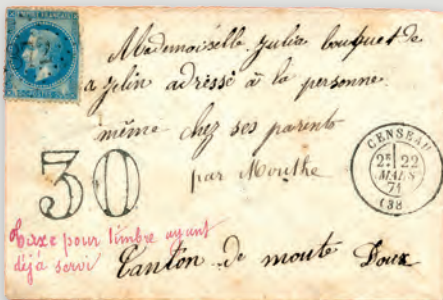 Mademoiselle Julia bouquet de
a Jelin adressé à la personne
même chez ses parents
par Mouthe
30
CENSEAU
2E 22
MARS
71
(38
Taxe pour timbre ayant
déjà servi
Canton de moute Doux